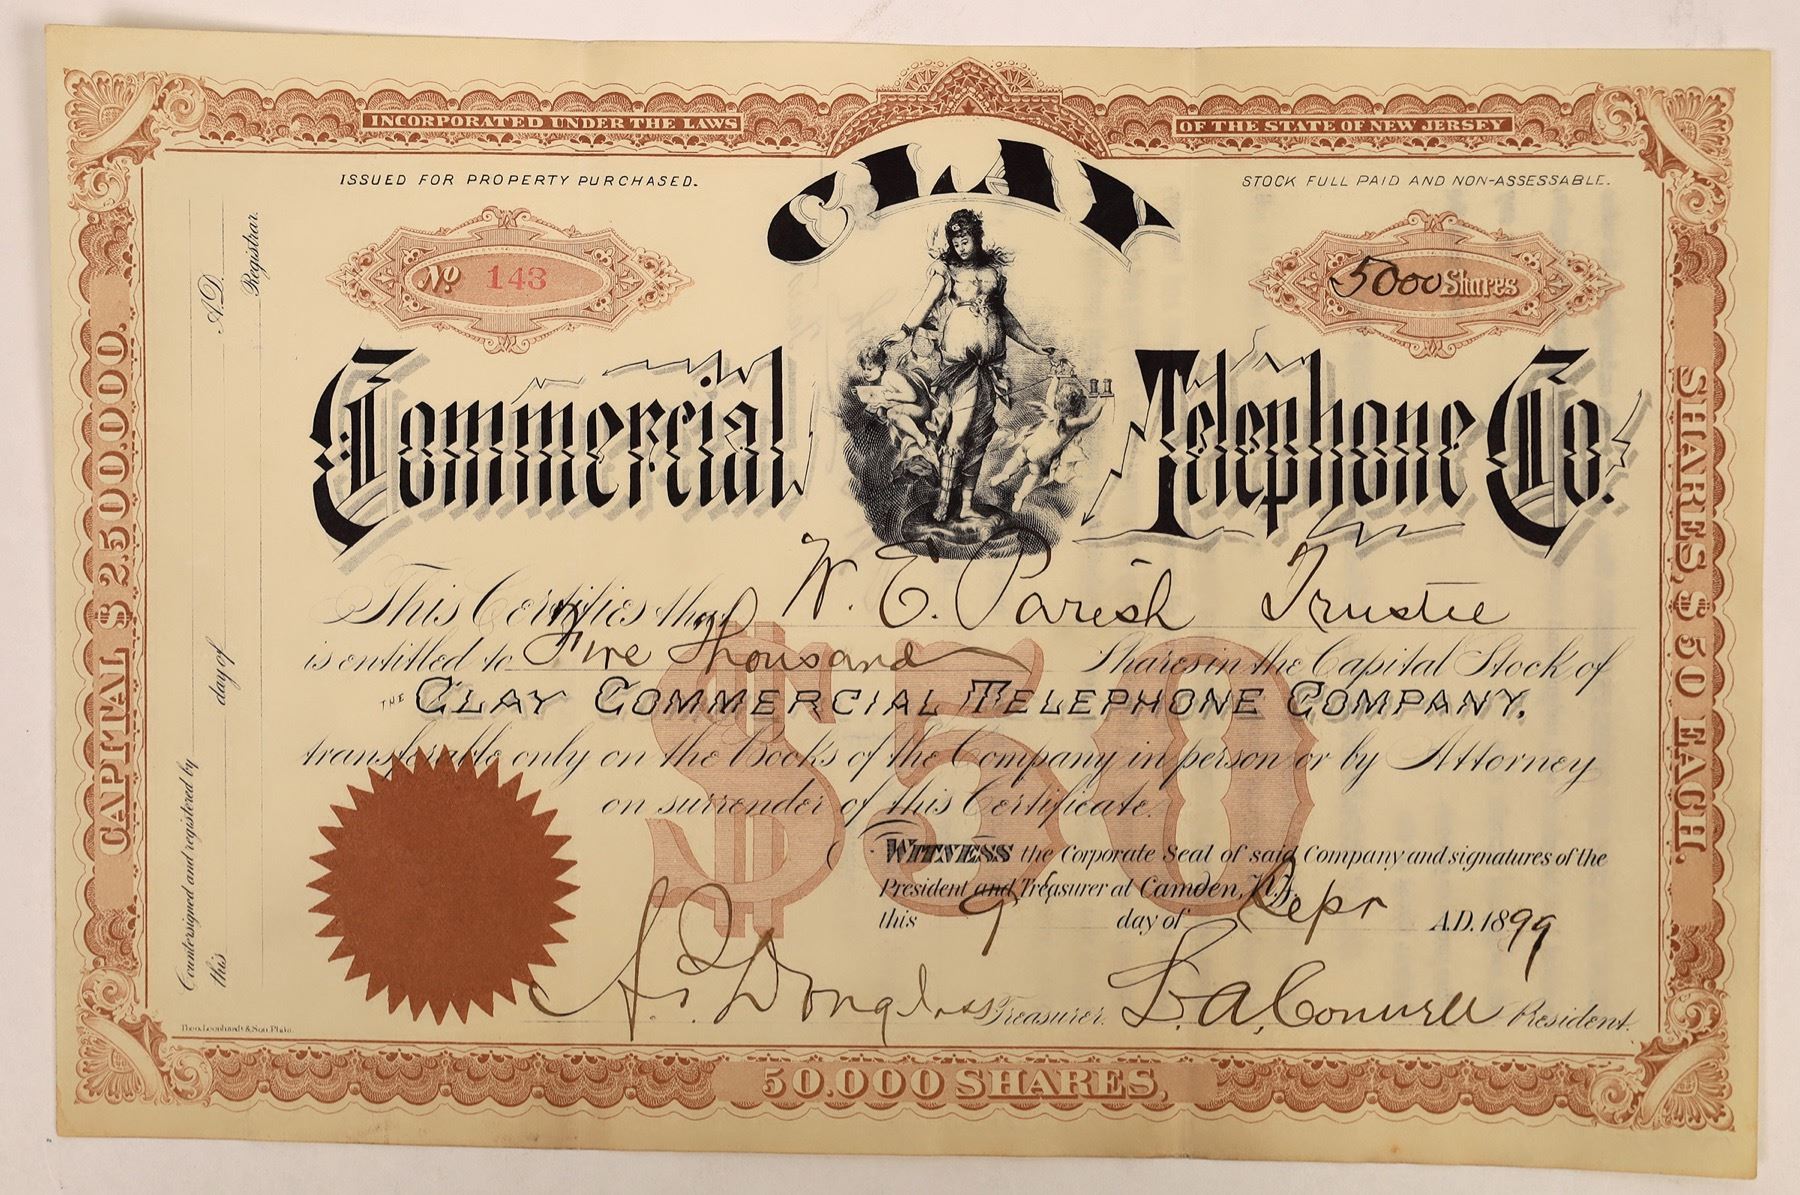 INCORPORATED UNDER THE LAWS OF THE STATE OF NEW JERSEY
ISSUED FOR PROPERTY PURCHASED.
STOCK FULL PAID AND NON-ASSESSABLE.
CLAY
No 143
5000 Shares
Commercial Telephone Co.
This Certifies that W. E. Parish Trustee
is entitled to Five Thousand Shares in the Capital Stock of
THE CLAY COMMERCIAL TELEPHONE COMPANY.
transferable only on the Books of the Company in person or by Attorney
on surrender of this Certificate.
$50
WITNESS the Corporate Seal of said Company and signatures of the
President and Treasurer at Camden, N.J.
this 9 day of A.D. 1899
Douglass Treasurer. Conwell President.
Countersigned and registered by
this day of A.D.
Registrar.
Theo. Leonhardt & Son. Phila.
CAPITAL $2,500,000.
SHARES, $50 EACH.
50,000 SHARES,